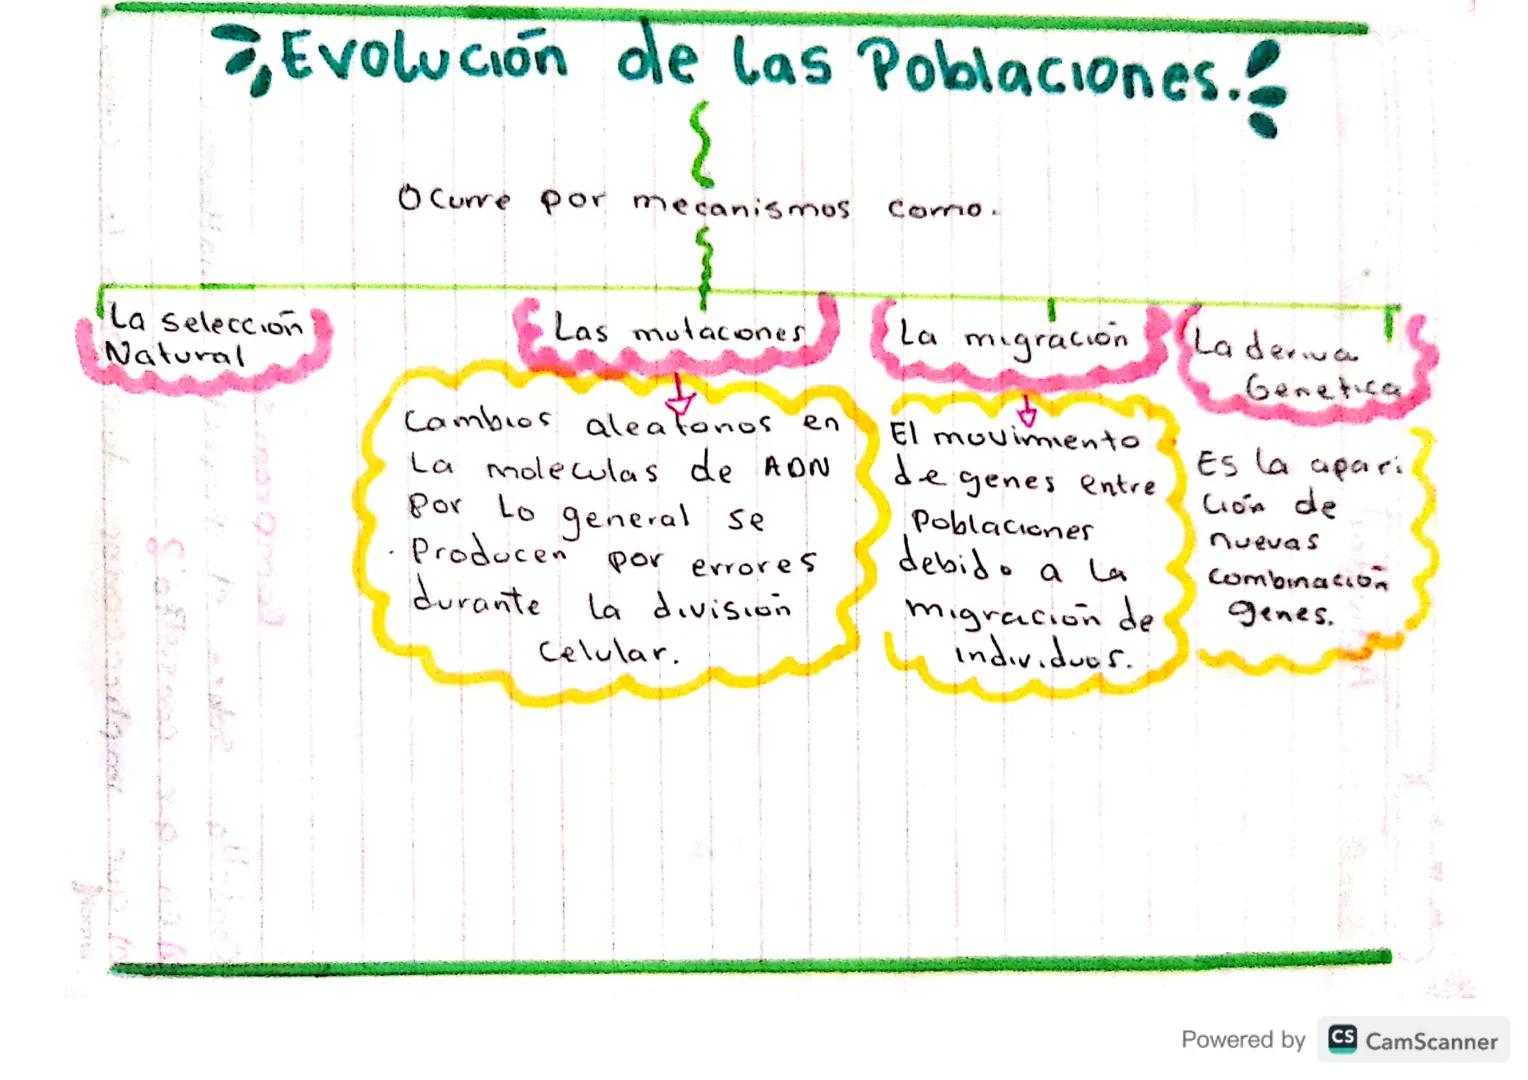 Evolución de las Poblaciones.
Ocurre por mecanismos como.
La selección
Natural
Las mutaciones
Cambios aleatorios en
La moleculas de ADN
Por Lo general se
Producen por errores
durante la división
Celular.
La migración
El movimiento
de genes entre
Poblaciones
debido a la
migración de
individuos.
La deriva
Genetica
Es la apari
ción de
nuevas
combinación
genes.
Powered by CS CamScanner